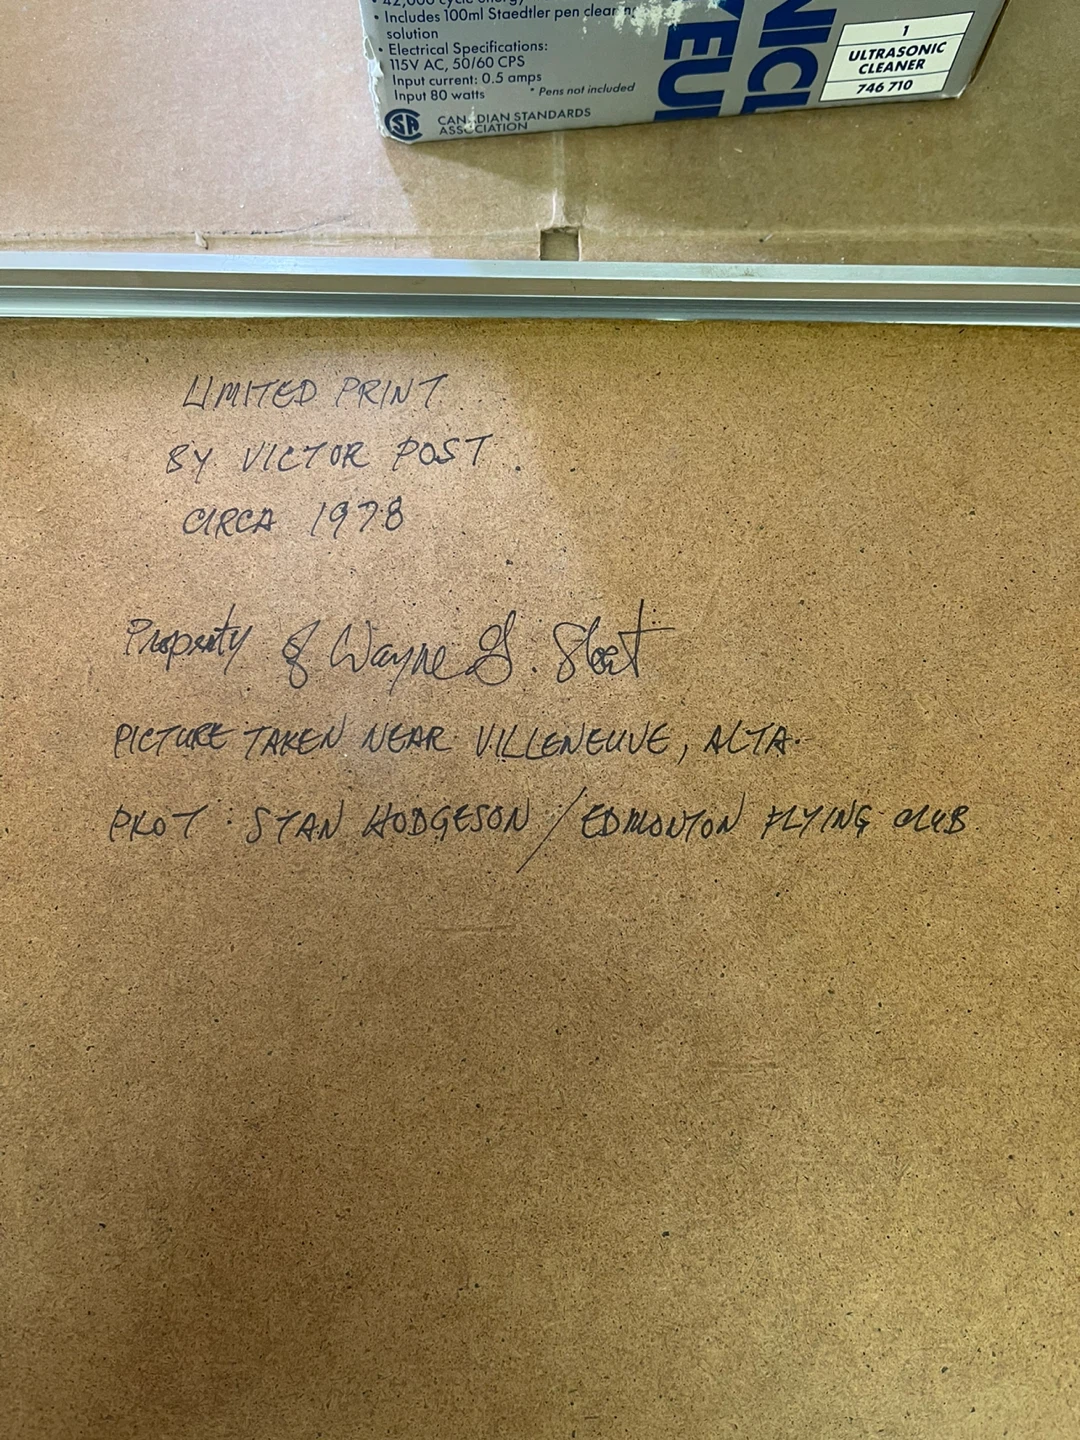 • 42,000 cycle energy
• Includes 100ml Staedtler pen cleaning
solution
• Electrical Specifications:
115V AC, 50/60 CPS
Input current: 0.5 amps
Input 80 watts
* Pens not included
CANADIAN STANDARDS
ASSOCIATION
1
ULTRASONIC
CLEANER
746 710
LIMITED PRINT
BY VICTOR POST
CIRCA 1978
Property of Wayne G.
PICTURE TAKEN NEAR VILLENEUVE, ALTA.
PILOT: STAN HODGESON / EDMONTON FLYING CLUB